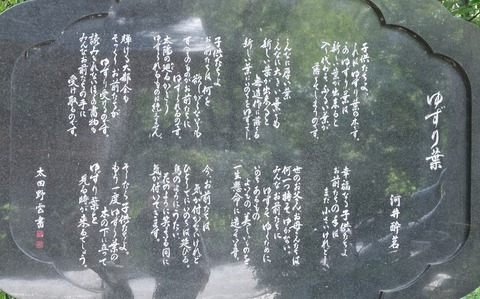 ゆずり葉
河井酔茗
子供たちよ。
これはゆずり葉の木です。
このゆずり葉は
新しい葉が出来ると
入り代わってふるい葉が
落ちてしまうのです。
こんなに厚い葉
こんなに大きい葉でも
新しい葉が出来ると
無造作に落ちる
新しい葉にいのちをゆずって
子供たちよ
お前たちは何を
欲しがらないでも
すべてのものがお前たちに
ゆずられるのです
太陽の廻るかぎり
ゆずられるものは絶えません。
輝ける大都会も
そっくりお前たちが
ゆずり受けるのです。
読みきれないほどの書物も
みんなお前たちの手に
受け取るのです。
幸福なる子供たちよ
お前たちの手は
まだ小さいけれど
世のお父さんお母さんたちは
何一つ持ってゆかない。
みんなお前たちに
ゆずってゆくために
いのちあるもの
よいもの美しいものを
一生懸命に造っています。
今、お前たちは
気が付かないけれど
ひとりでにいのちは延びる。
鳥のようにうたい、
花のように笑っている間に
気が付いてきます。
そしたら子供たちよ、
もう一度ゆずり葉の
木の下に立って
ゆずり葉を
見る時が来るでしょう。
太田野
書